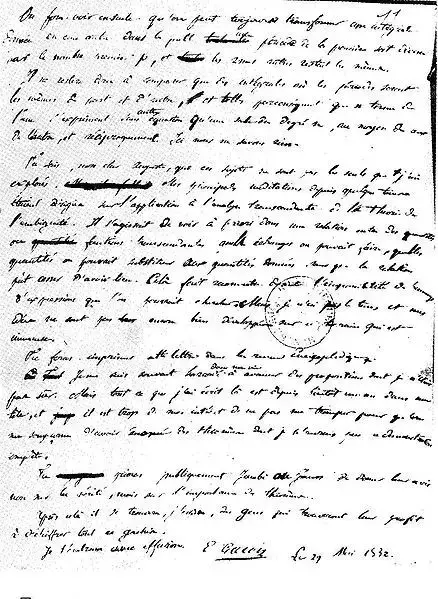 On fera voir ensuite qu'on peut toujours transformer une intégrale
donnée en une autre dans laquelle une période de la première soit divisée
par le nombre premier p, et les 2n-1 autres restent les mêmes.
Il ne restera donc à comparer que des intégrales où les périodes seront
les mêmes de part et d'autre, et telles par conséquent que n termes de
l'une s'expriment sans autre équation qu'une seule du degré n, au moyen de ceux
de l'autre, et réciproquement. Ici nous ne savons rien.
Tu sais, mon cher Auguste, que ces sujets ne sont pas les seuls que j'aie
explorés. Mes principales méditations depuis quelque temps
étaient dirigées sur l'application à l'analyse transcendante de la théorie de
l'ambiguité. Il s'agissait de voir à priori dans une relation entre des quantités
ou fonctions transcendantes quels échanges on pouvait faire, quelles
quantités on pouvait substituer aux quantités données sans que la relation
pût cesser d'avoir lieu. Cela fait reconnaitre l'impossibilité de beaucoup
d'expressions que l'on pourrait chercher. Mais je n'ai pas le temps et mes
idées ne sont pas encore bien développées sur ce terrain qui est
immense.
Tu feras imprimer cette lettre dans la revue encyclopédique.
Je me suis souvent hasardé dans ma vie à avancer des propositions dont je n'étais
pas sûr. Mais tout ce que j'ai écrit là est depuis bientôt un an dans ma
tête, et il est trop de mon intérêt de ne pas me tromper pour qu'on
me soupçonne d'avoir énoncé des théorèmes dont je n'aurais pas la démonstration
complète.
Tu prieras publiquement Jacobi ou Gauss de donner leur avis
non sur la vérité, mais sur l'importance des théorèmes.
Après cela il se trouvera, j'espère, des gens qui trouveront leur profit
à déchiffrer tout ce gachis.
Je t'embrasse avec effusion. E Galois Le 29 Mai 1832.